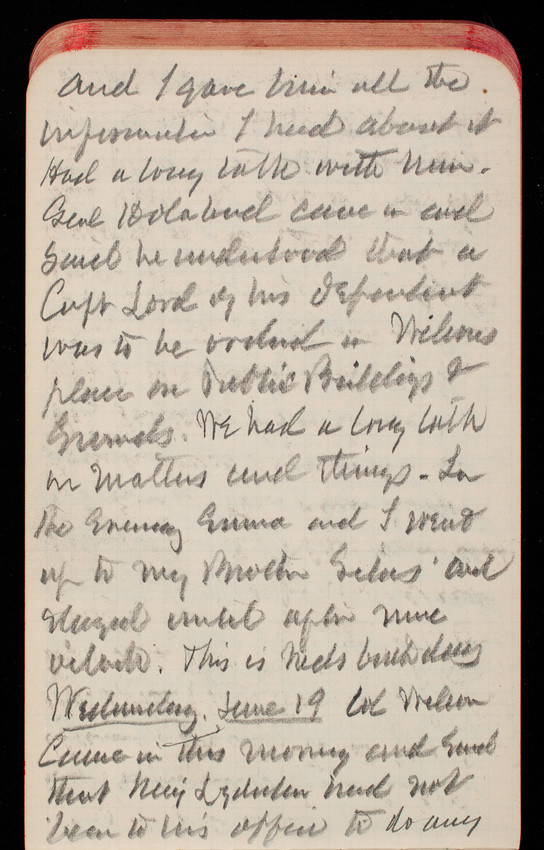 and I gave him all the
information I had about it
Had a long talk with him.
Genl Holabird came in and
said he understood that a
Capt Lord of his Department
was to be ordered in Wilsons
place on Public Buildings &
Grounds. We had a long talk
on matters and things. In
the Evening Emma and I went
up to my Brother Silas' and
stayed until after nine
oclock. This is Neds birthday
Wednesday, June 19 Col Wilson
Came in this morning and said
that Maj Lydecker had not
been to his office to do any